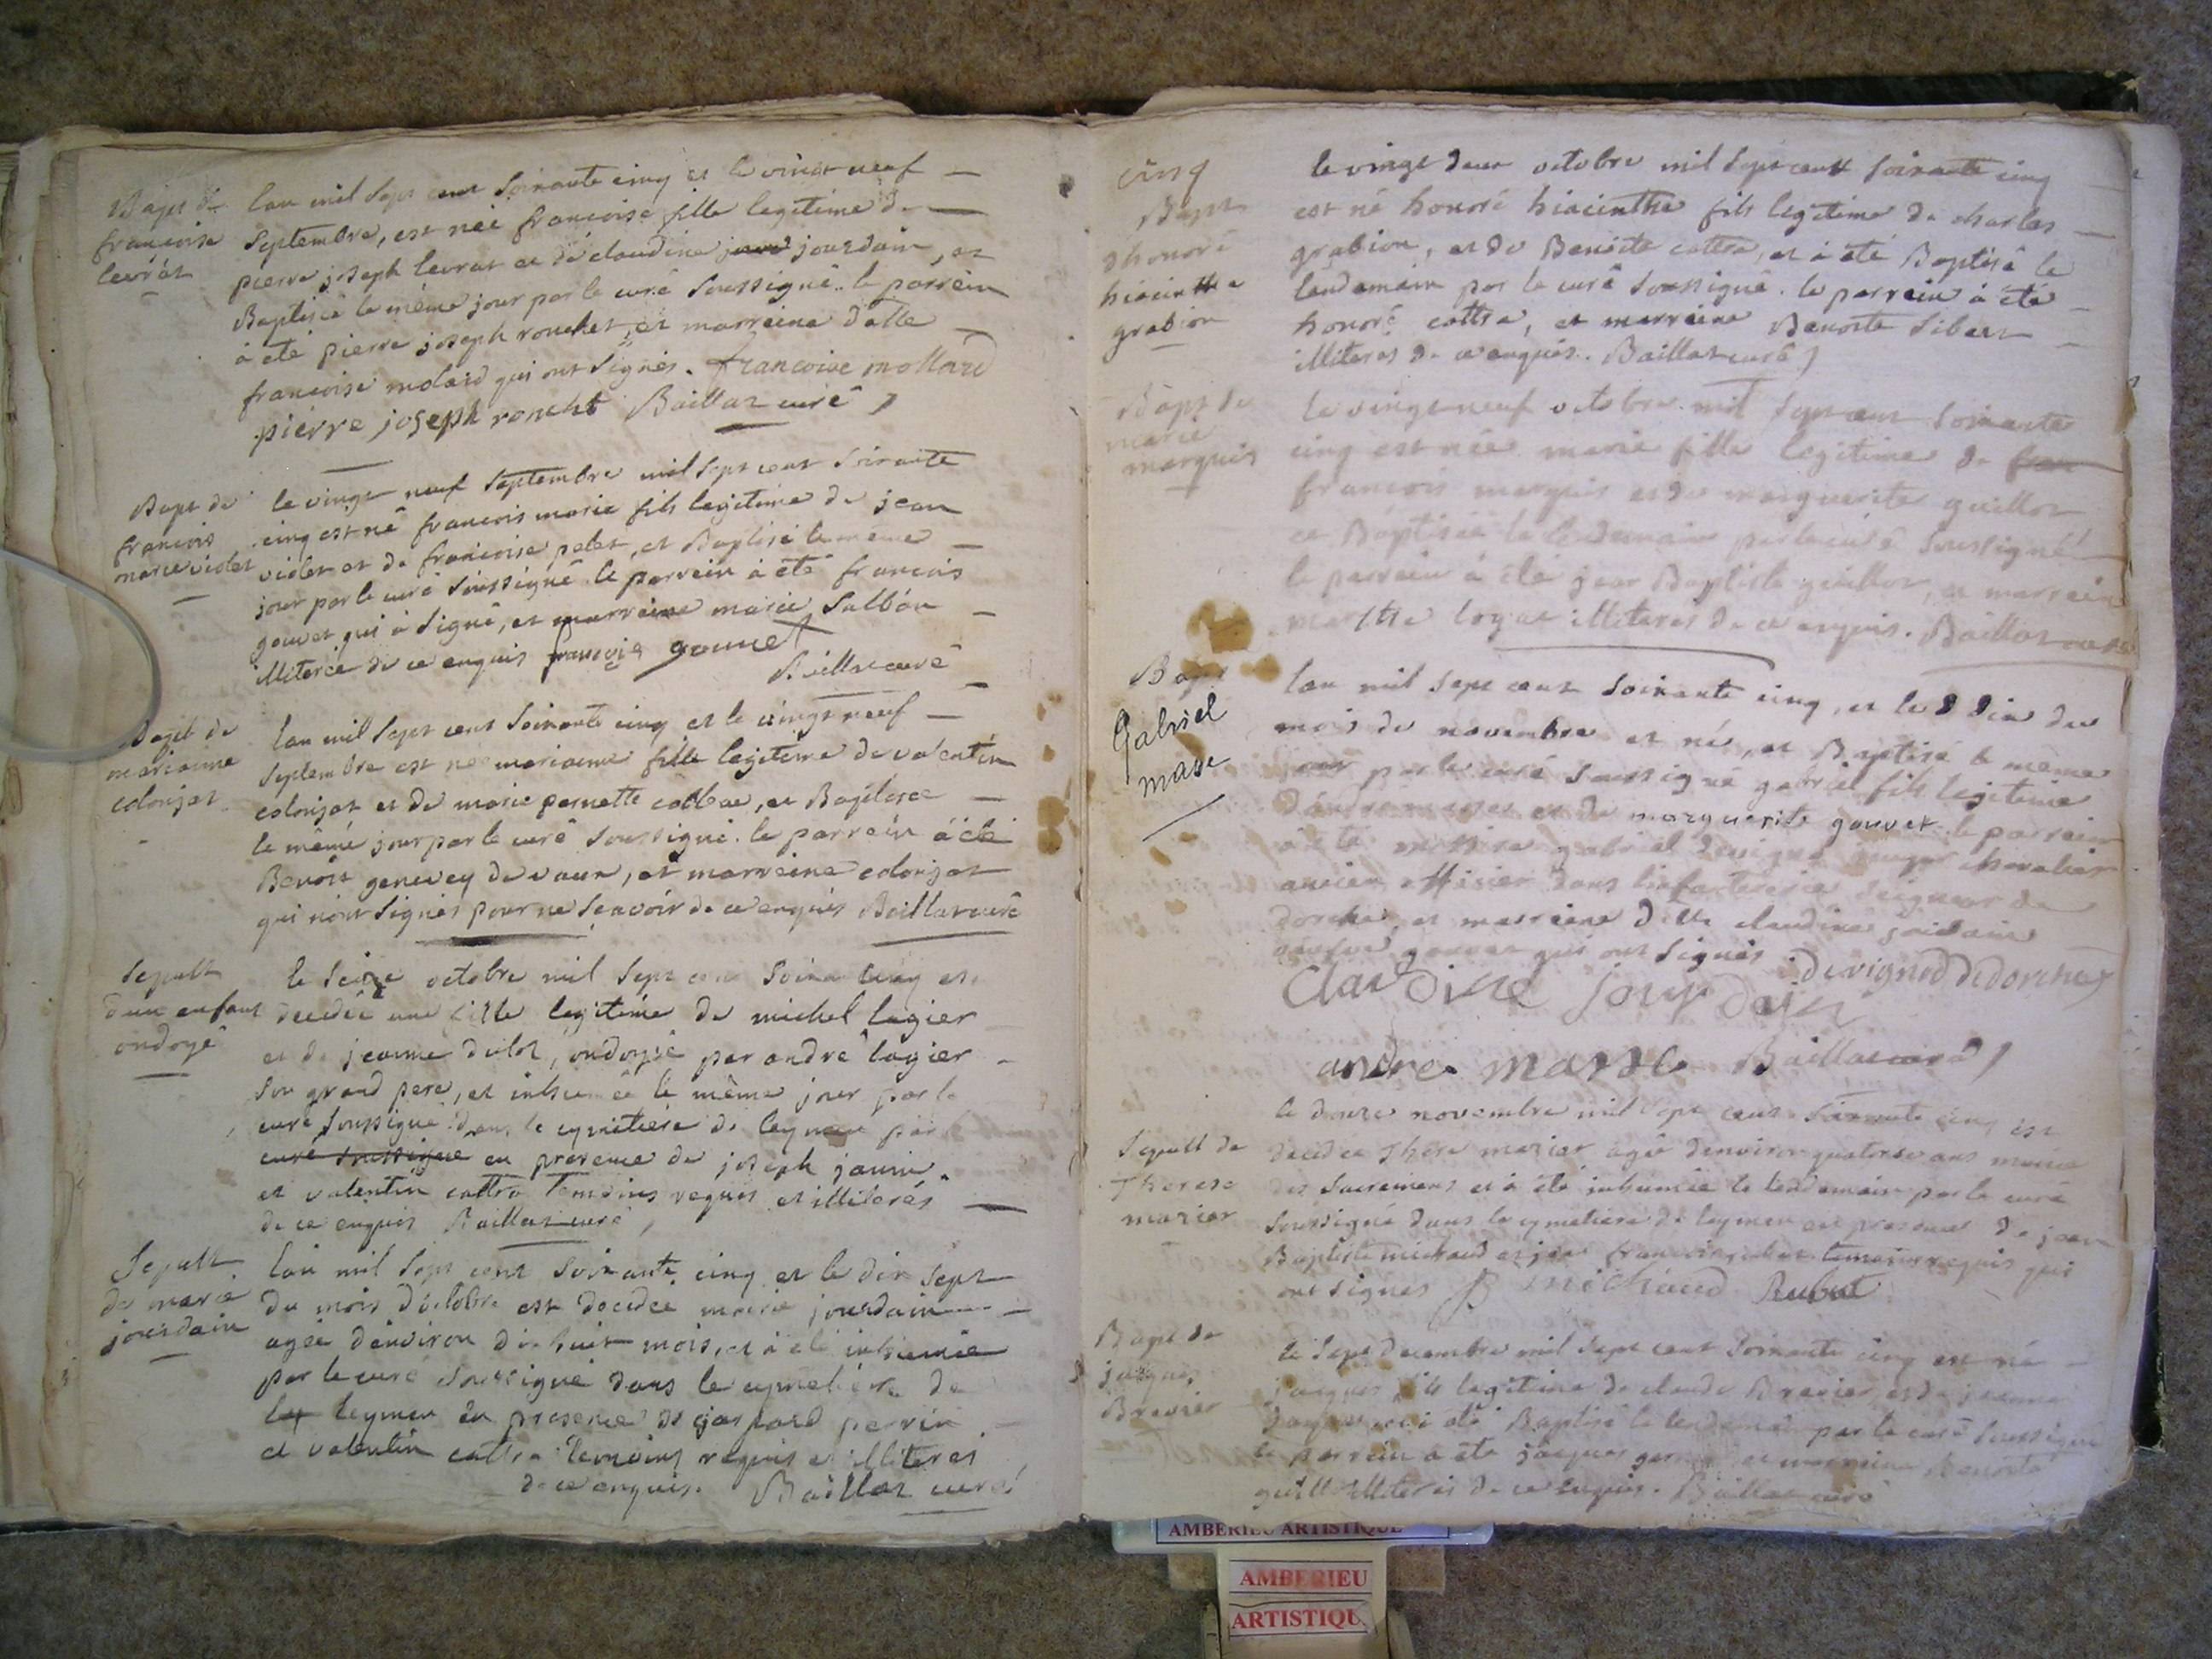 Bapt de
francoise
levrat
lan mil sept cent soixante cinq et le vingt neuf
septembre, est neé francoise fille legitime de
pierre joseph levrat et de claudine jourdain, et
Baptisée le même jour par le curé soussigné. le parrein
à eté pierre joseph rouchet, et marreine dalle
francoise molard qui ont signés. francoise mollard
pierre joseph rouchet Baillat curé
Bapt de
francois
marie violet
le vingt neuf septembre mil sept cent soixante
cinq est né francois marie fils legitime de jean
violet et de francoise pelet, et Baptisé le même
jour par le curé soussigné le parrein à été francois
gouvet qui à signé, et marreine marie
illiterée de ce enquis francois gouvet
Baillat curé
Bapt de
marianne
colonjat
lan mil sept cent soixante cinq et le vingt neuf
septembre est neé marianne fille legitime de valentin
colonjat et de marie pernette et Baptisée
le même jour par le curé soussigné. le parrein à été
Benoit genevey de vaux, et marreine colonjat
qui nont signés pour ne scavoir de ce enquis Baillat curé
sepult
dun enfant
ondoyé
le seize octobre mil sept cent soixante cinq est
decedée une fille legitime de michel lagier
et de jeanne dulot, ondoyée par andré lagier
son grand pere, et inhumée le même jour par le
curé soussigné dans le cymetiere de leymen par le
curé soussigné en presence de joseph
et valentin cottra temoins requis et illiterés
de ce enquis Baillat curé
Sepult
de marie
jourdain
lan mil sept cent soixante cinq et le dix sept
du mois doctobre est decedée marie jourdain
ageé denviron dix huit mois, et à été inhumée
par le curé soussigné dans le cymetiere de
ley leymen en presence de gaspard perrin
et valentin cottra temoins requis et illiteres
de ce enquis. Baillat curé
cinq
Bapt
dhonoré
hiacinthe
grabion
le vingt deux octobre mil sept cent soixante cinq
est né honoré hiacinthe fils legitime de charles
grabion, et de Benoite cottra, et à été Baptisé le
lendemain par le curé soussigné. le parrein à été
honoré cottra, et marreine Benoite Sibert
illiteres de ce enquis. Baillat curé
Bapt de
marie
marquis
le vingt neuf octobre mil sept cent soixante
cinq est née marie fille legitime de fran
francois marquis et de marguerite guillot
et Baptisée le lendemain par le curé soussigné
le parrein à été jean Baptiste guillot, et marreine
marthe illiteres de ce enquis. Baillat curé
Bapt
Gabriel
masse
lan mil sept cent soixante cinq, et le dix du
mois de novembre est né, et Baptisé le même
jour par le curé soussigné gabriel fils legitime
dandré masse et de marguerite gouvet le parrein
à été messire gabriel chevalier
ancien officier dans linfanterie seigneur de
dorche, et marreine dlle claudine jourdain
gouvet qui ont signés. devignod dedorche
Claudine jourdain
andre masse Baillat curé
Sepult de
Therese
marier
le douze novembre mil sept cent soixante cinq est
decedée These marier agée denviron quatorse ans munie
des sacremens et à été inhumée le lendemain par le curé
soussigné dans le cymetiere de leymen en presence de jean
Baptiste michaud et jean francois rubat temoins requis qui
ont signés JB michaud Rubat
Bapt de
jacques
Brevier
le sept decembre mil sept cent soixante cinq est né
jacques fils legitime de claude Brevier, et de jeanne
à été Baptisé le lendemain par le curé soussigné
le parrein à été jacques et marreine Benoite
illiterés de ce enquis. Baillat curé
AMBERIEU ARTISTIQUE
AMBERIEU
ARTISTIQU